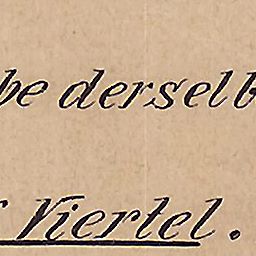 be derselb
Viertel.